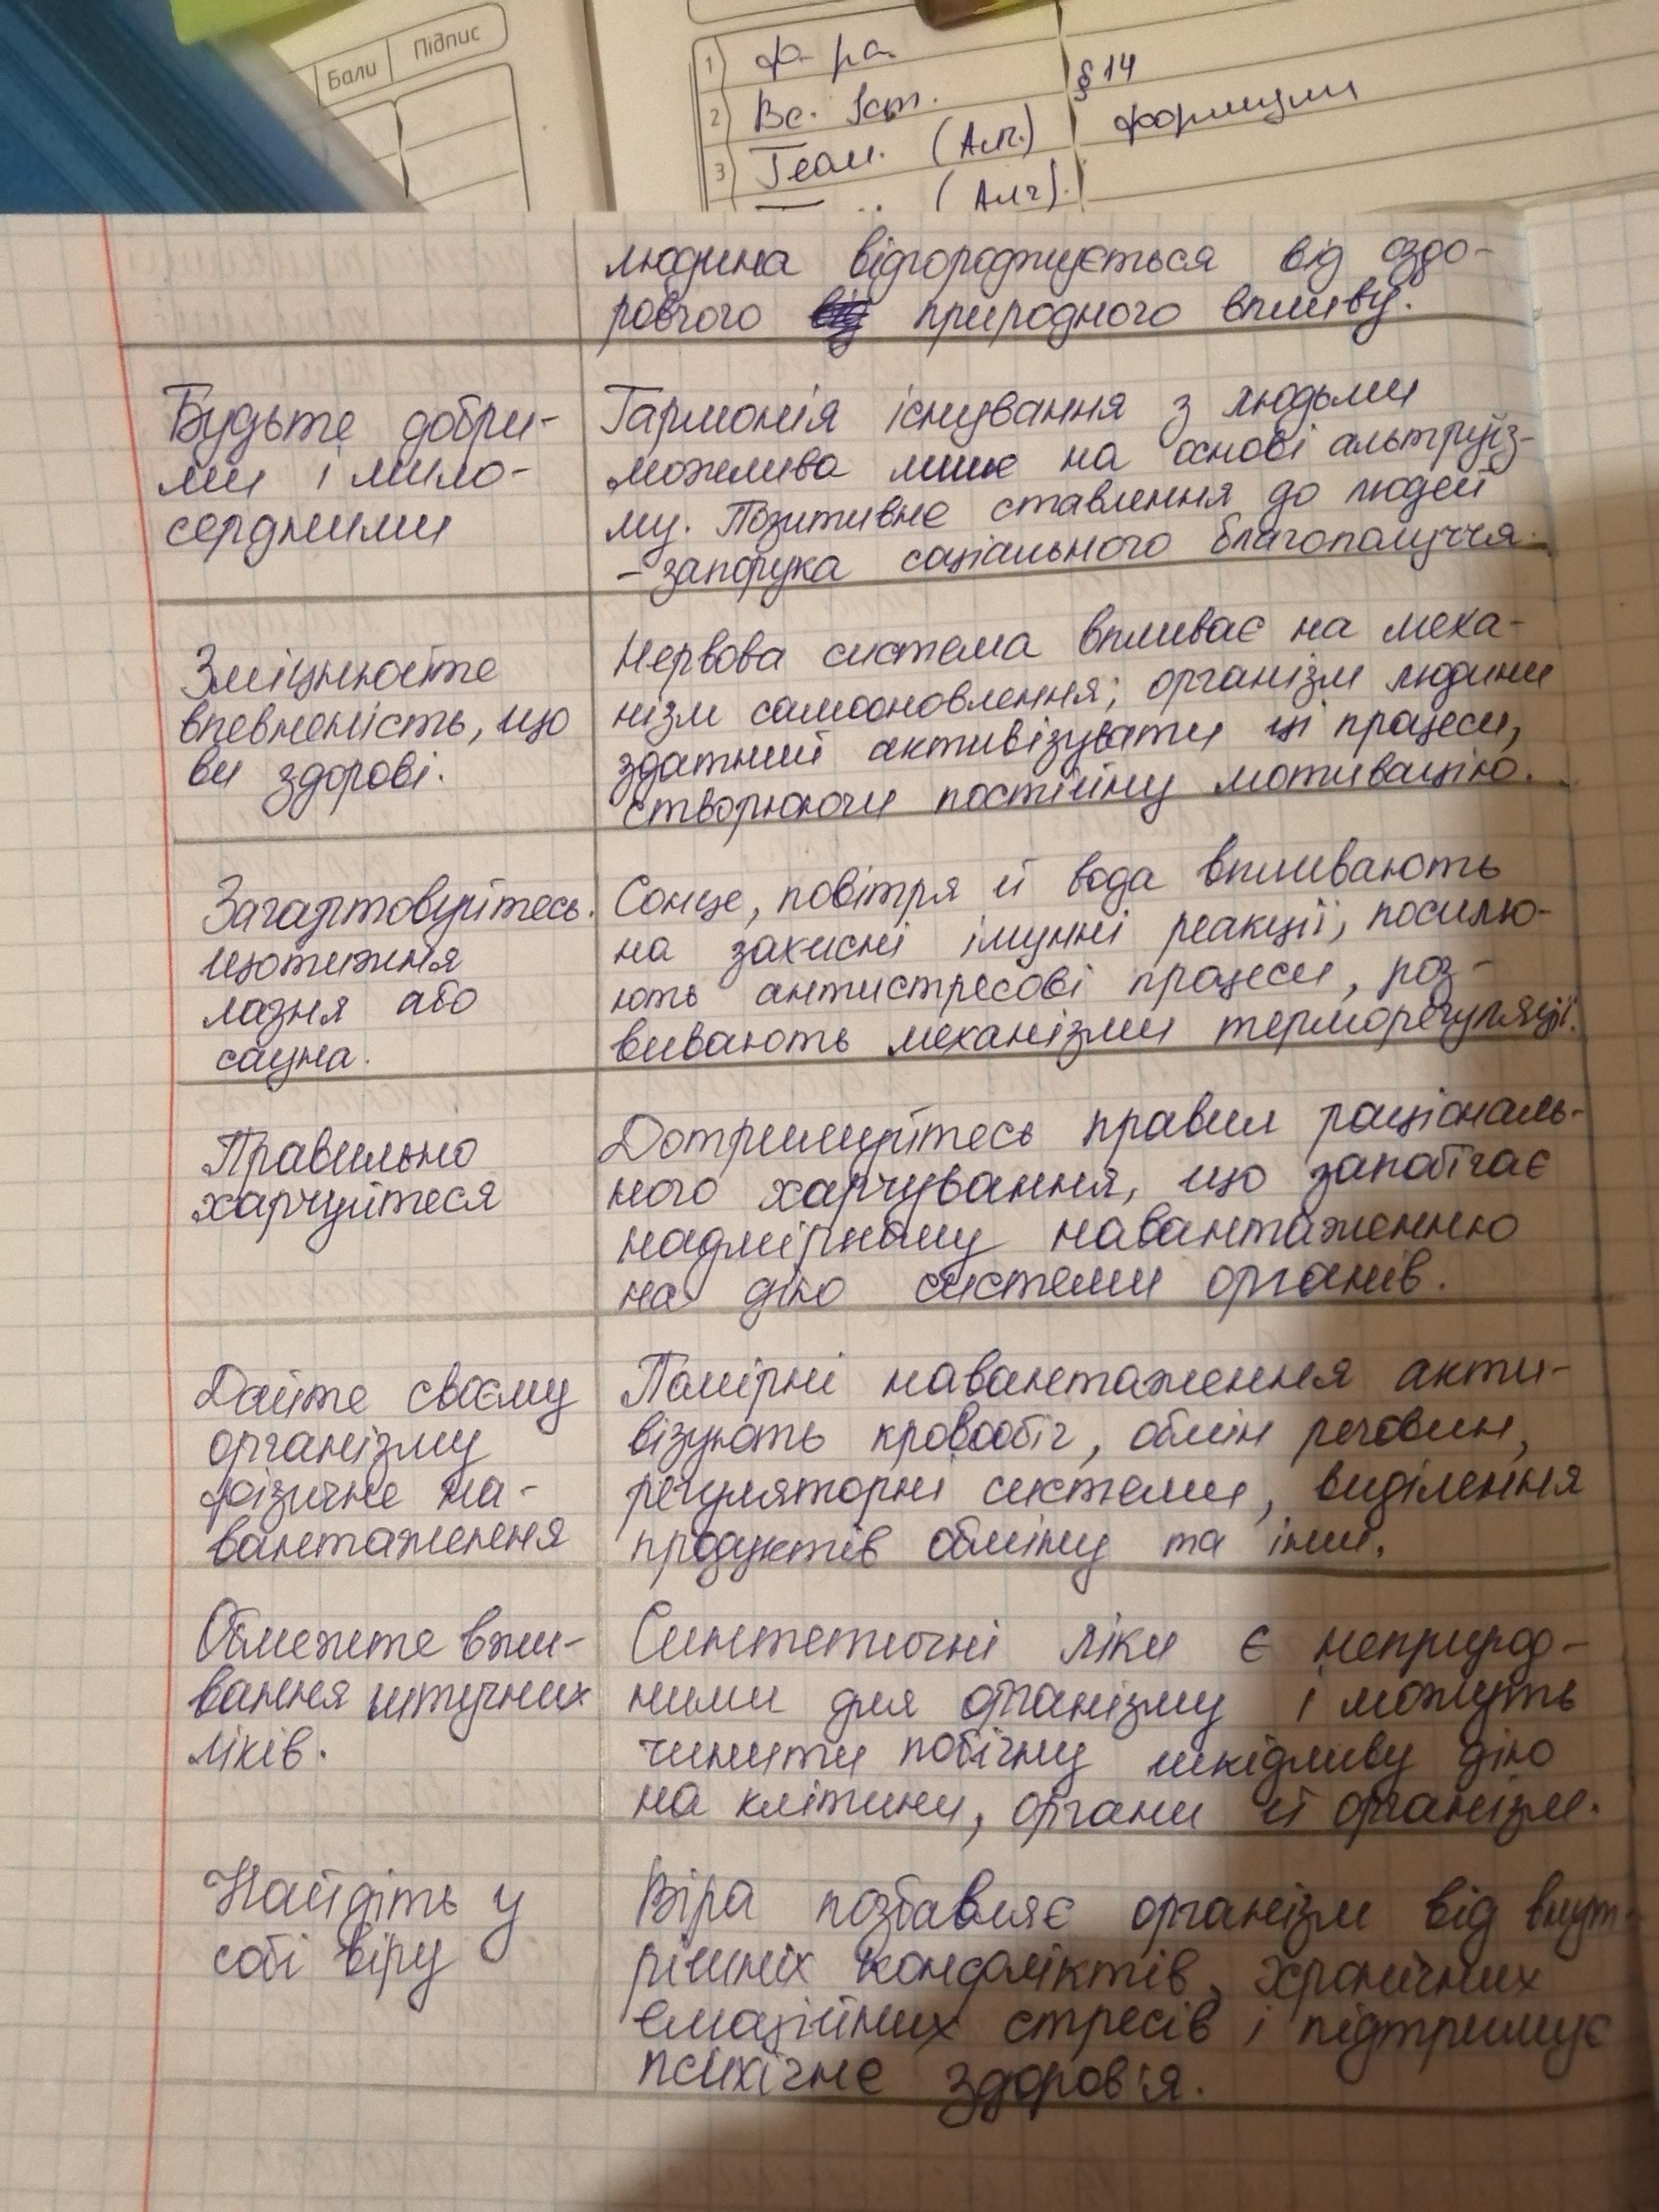 Бали Підпис
1) Ф-ра
2) Вс. Іст. §14
3) Геом. (Алг.) формули
(Алг).
людина відгороджується від оздо-
ровчого природного впливу.
Будьте добри-
ми і мило-
сердними
Гармонія існування з людьми
можлива лише на основі альтруїз-
му. Позитивне ставлення до людей
- запорука соціального благополуччя.
Зміцнюйте
впевненість, що
ви здорові.
Нервова система впливає на меха-
нізм самооновлення; організм людини
здатний активізувати ці процеси,
створюючи постійну мотивацію.
Загартовуйтесь.
щотижня
лазня або
сауна.
Сонце, повітря й вода впливають
на захисні імунні реакції, посилю-
ють антистресові процеси, роз-
вивають механізми терморегуляції.
Правильно
харчуйтеся
Дотримуйтесь правил раціональ-
ного харчування, що запобігає
надмірному навантаженню
на дію системи органів.
Дайте своєму
організму
фізичне на-
вантаження
Помірні навантаження акти-
візують кровообіг, обмін речовин,
регуляторні системи, виділення
продуктів обміну та інш.
Обмежте вжи-
вання штучних
ліків.
Синтетичні ліки є неприрод-
ними для організму і можуть
чинити побічну шкідливу дію
на клітини, органи й організм.
Найдіть у
собі віру
Віра позбавляє організм від внут-
рішніх конфліктів, хронічних
емоційних стресів і підтримує
психічне здоров'я.